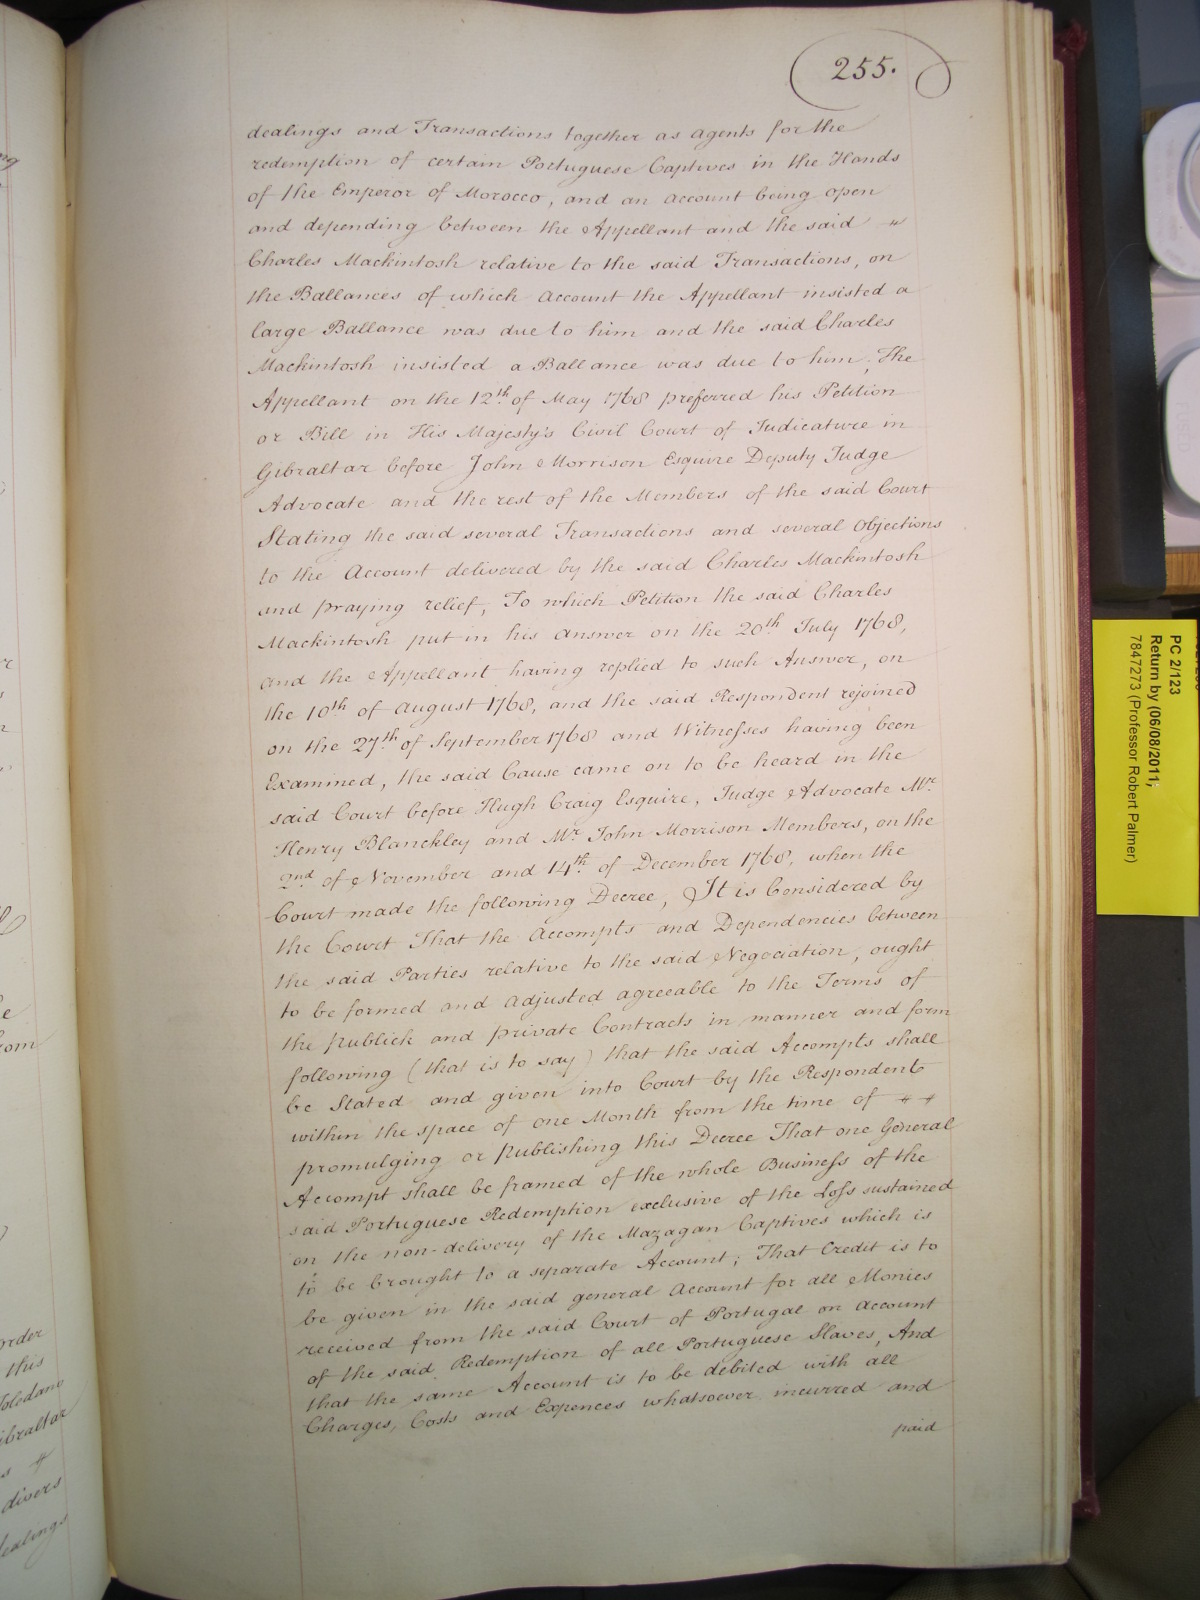 255.
dealings and Transactions together as Agents for the
redemption of certain Portuguese Captives in the Hands
of the Emperor of Morocco, and an Account being open
and depending between the Appellant and the said
Charles Mackintosh relative to the said Transactions, on
the Ballances of which Account the Appellant insisted a
large Ballance was due to him and the said Charles
Mackintosh insisted a Ballance was due to him; The
Appellant on the 12th of May 1768 preferred his Petition
or Bill in His Majesty's Civil Court of Judicature in
Gibraltar before John Morrison Esquire Deputy Judge
Advocate and the rest of the Members of the said Court
Stating the said several Transactions and several Objections
to the Account delivered by the said Charles Mackintosh
and praying relief, To which Petition the said Charles
Mackintosh put in his Answer on the 20th July 1768,
and the Appellant having replied to such Answer, on
the 10th of August 1768, and the said Respondent rejoined
on the 27th of September 1768 and Witnesses having been
Examined, the said Cause came on to be heard in the
said Court before Hugh Craig Esquire, Judge Advocate Mr.
Henry Blanckley and Mr. John Morrison Members, on the
2nd of November and 14th of December 1768, when the
Court made the following Decree, It is Considered by
the Court That the Accompts and Dependencies between
the said Parties relative to the said Negociation, ought
to be formed and adjusted agreeable to the Terms of
the publick and private Contracts in manner and form
following (that is to say) that the said Accompts shall
be Stated and given into Court by the Respondent
within the space of one Month from the time of
promulging or publishing this Decree That one General
Accompt shall be framed of the whole Business of the
said Portuguese Redemption exclusive of the Loss sustained
on the non-delivery of the Mazagan Captives which is
to be brought to a separate Account; That Credit is to
be given in the said general Account for all Monies
received from the said Court of Portugal on Account
of the said Redemption of all Portuguese Slaves, And
that the same Account is to be debited with all
Charges, Costs and Expences whatsoever incurred and
paid
order
this
Toledano
Gibraltar
divers
dealings
PC 2/123
Return by (06/08/2011;
7847273 (Professor Robert Palmer)